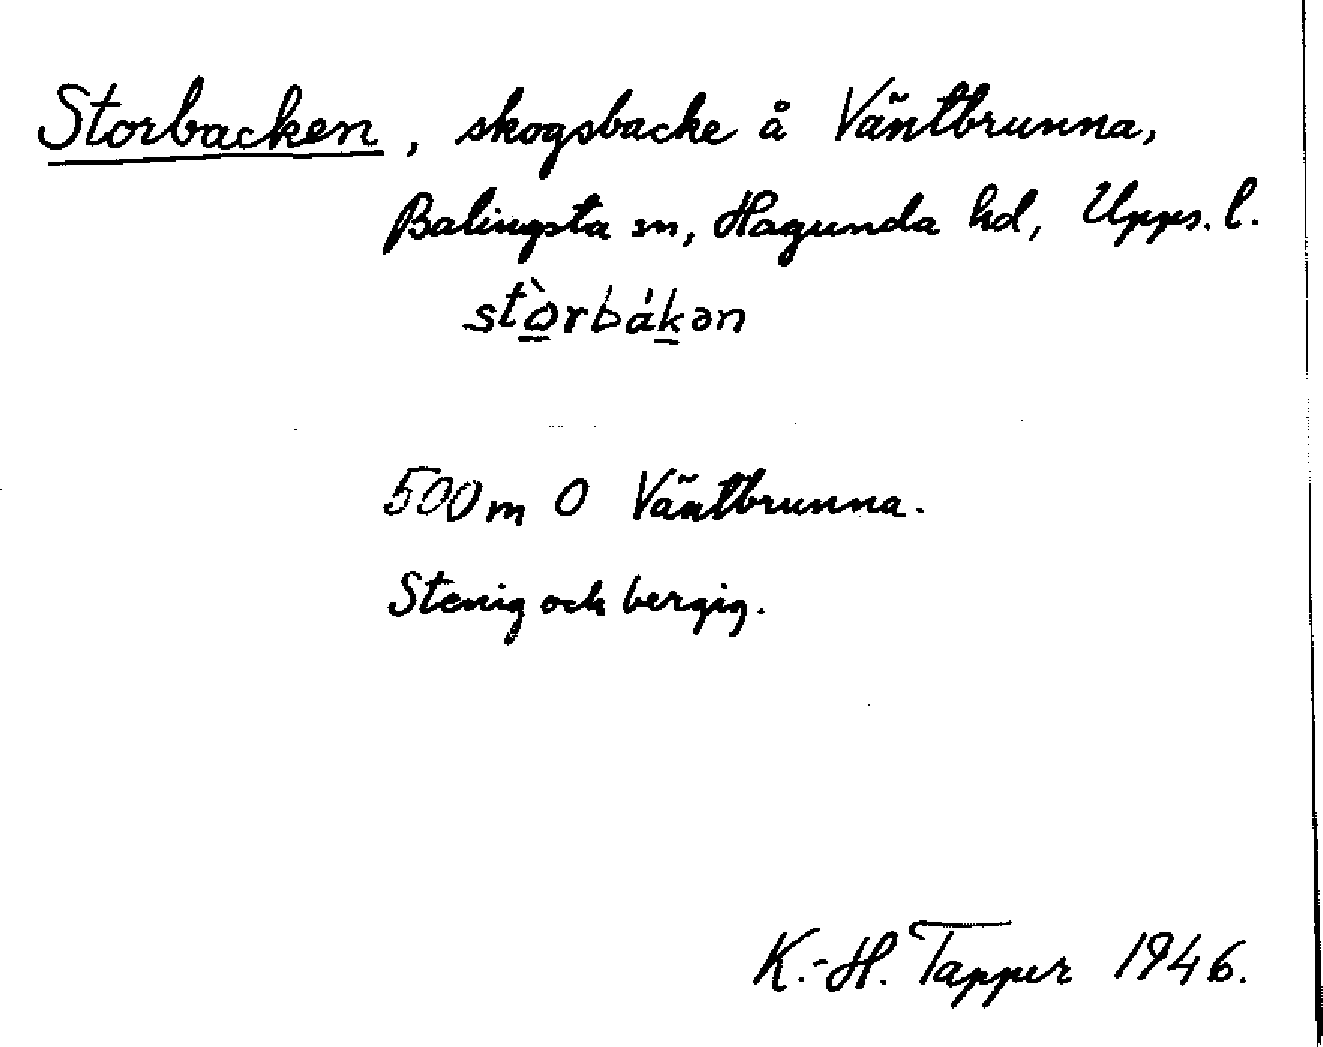 Storbacken, skogsbacke å Väntbrunna,
Balingsta sn, Hagunda hd, Upps. l.
stò̠rbák̠ən
500 m O Väntbrunna.
Stenig och bergig.
K.-H. Tapper 1946.